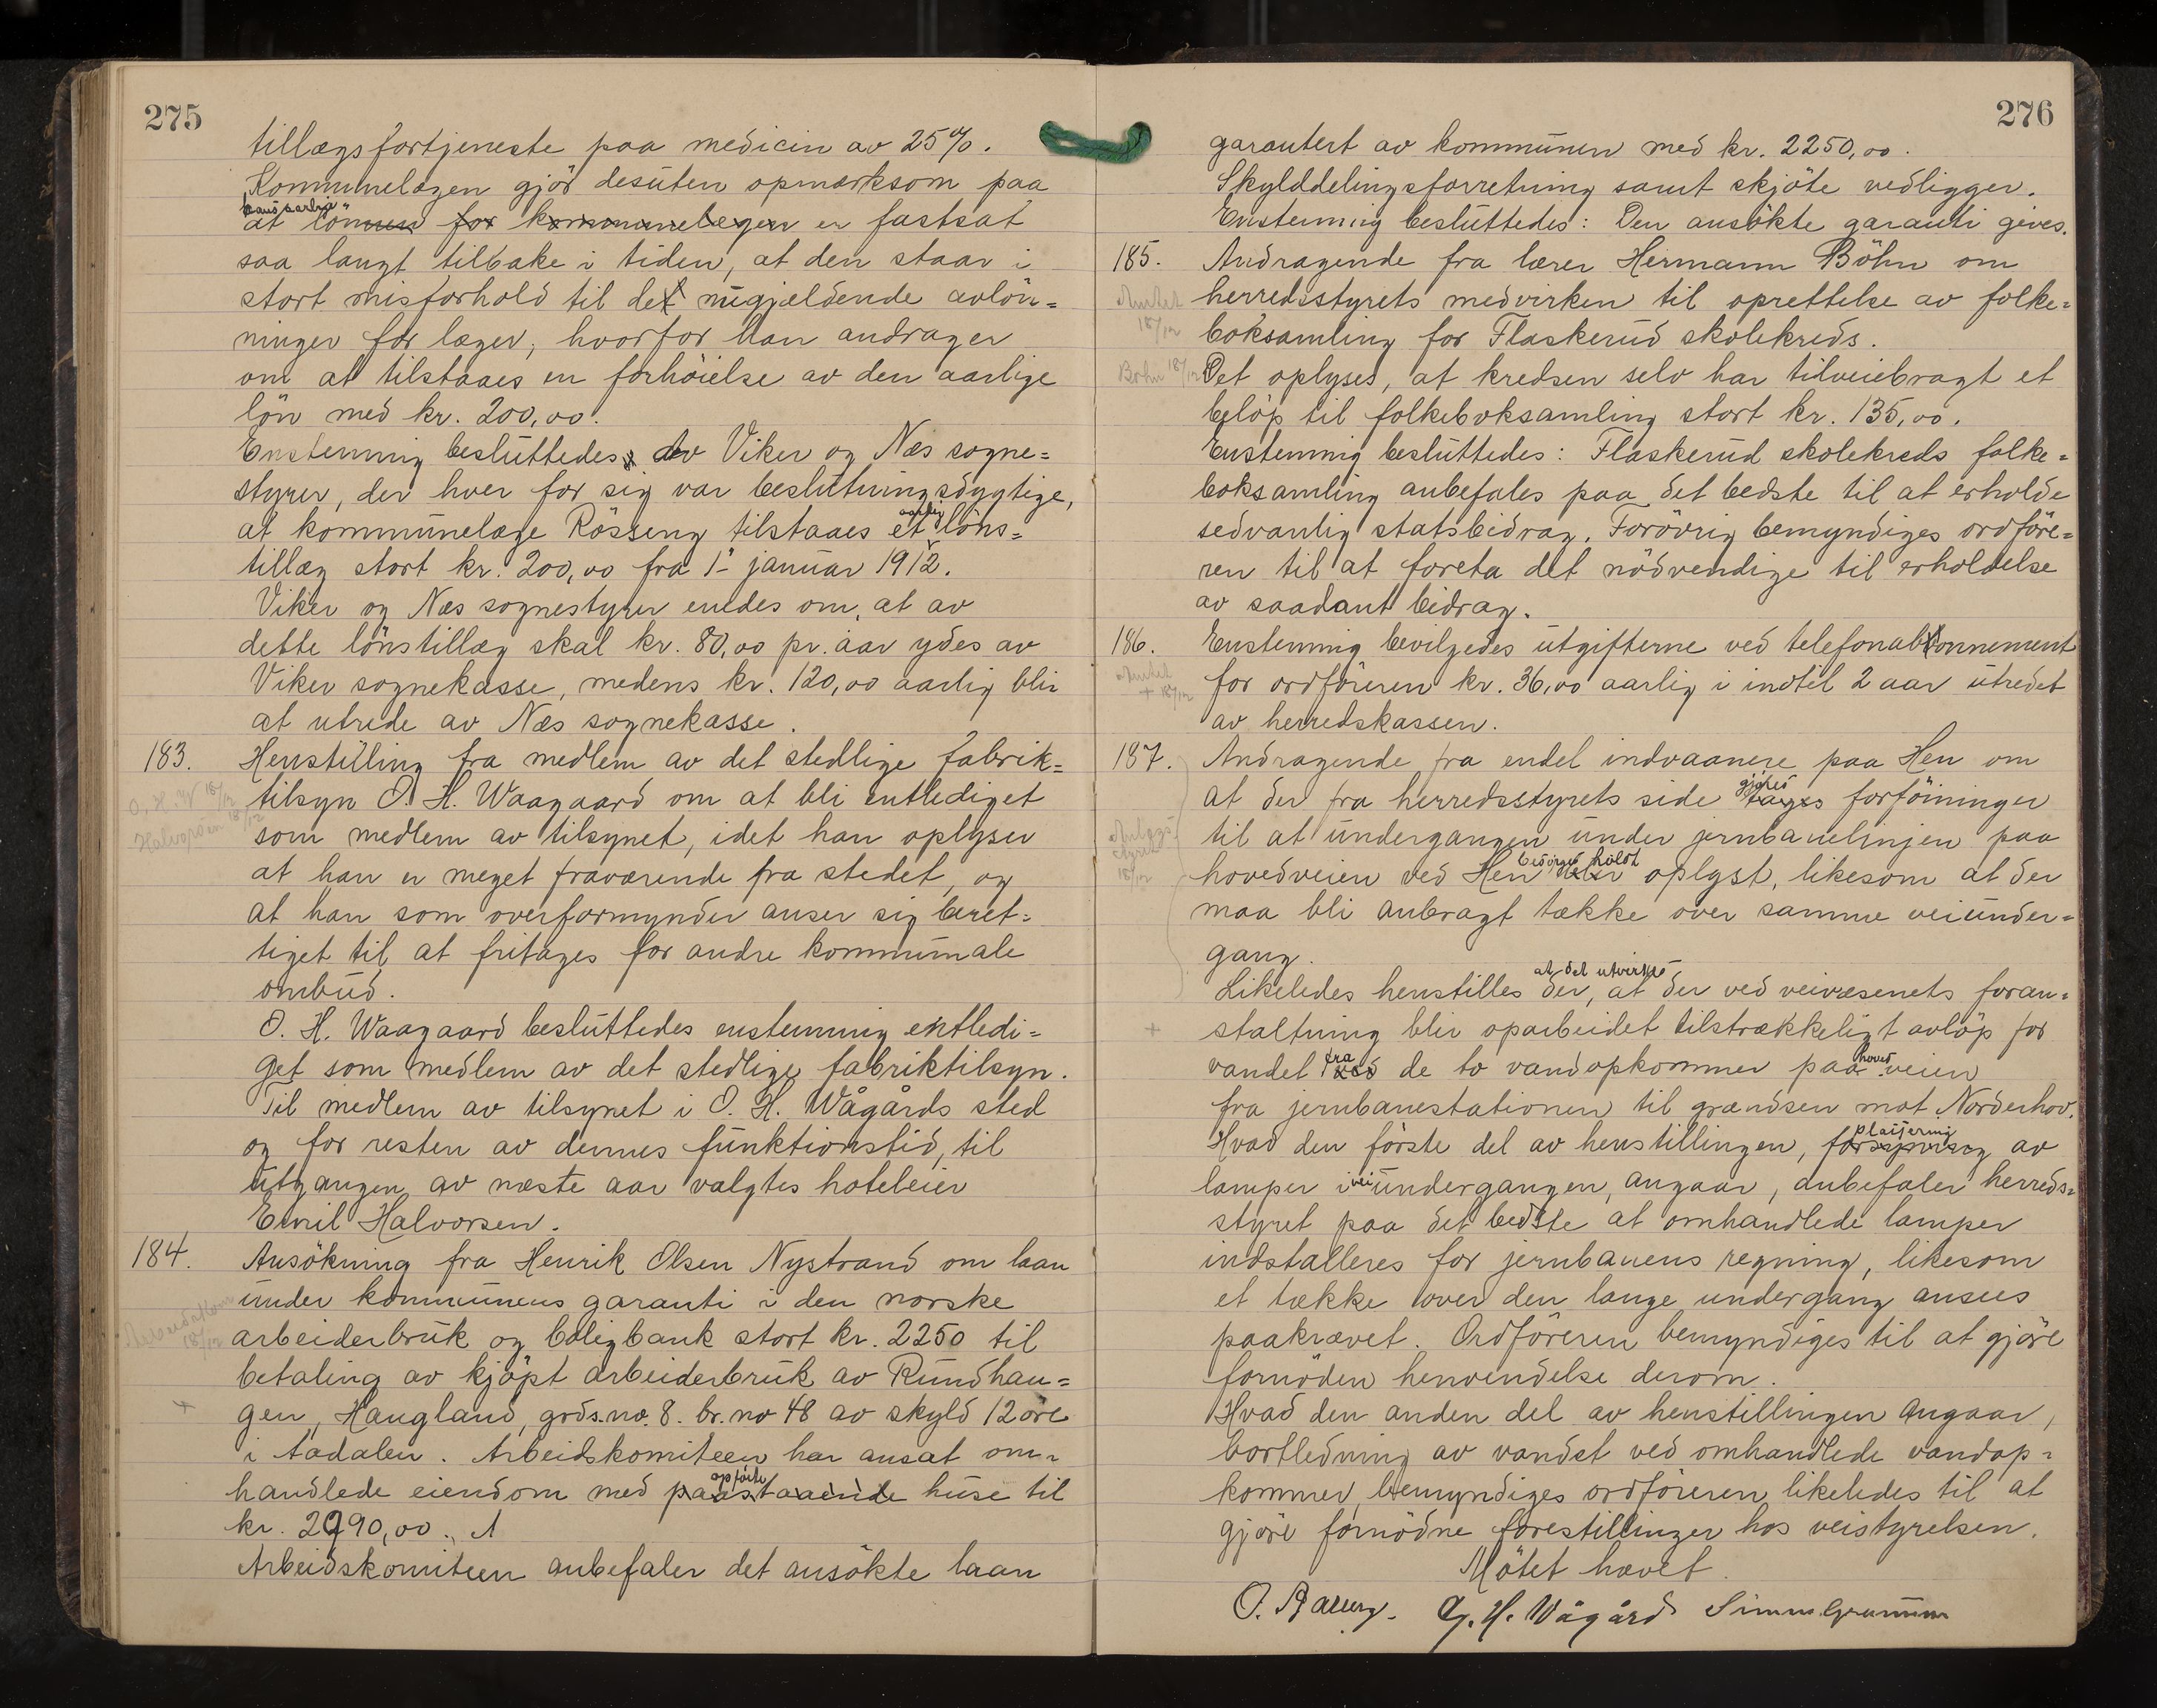 275
tillægsfortjeneste paa medicin av 25%.
Kommunelægen gjör desuten opmærksom paa
hans aarlige
at lönnen for kommunelægen er fastsat
saa langt tilbake i tiden, at den staar i
stort misforhold til det nugjældende avlön=
ninger for læger, hvorfor han andrager
om at tilstaaes en forhöielse av den aarlige
lön med kr. 200,00.
Enstemmig besluttedes av Viker og Næs sogne=
styrer, der hver for sig var beslutningsdygtige,
at kommunelæge Rösseng tilstaaes et aarlig löns=
tillæg stort kr. 200,00 fra 1- januar 1912.
Viker og Næs sognestyrer enedes om, at av
dette lönstillæg skal kr. 80,00 pr. aar ydes av
Viker sognekasse, medens kr. 120,00 aarlig blir
at utrede av Næs sognekasse.
183. Henstilling fra medlem av det stedlige fabrik=
O. H. W 18/12
tilsyn O. H. Waagaard om at bli entlediget
Halvorsen 18/12
som medlem av tilsynet, idet han oplyser
at han er meget fraværende fra stedet, og
at han som overformynder anser sig beret=
tiget til at fritages for andre kommunale
ombud.
O. H. Waagaard besluttedes enstemmig entledi=
get som medlem av det stedlige fabriktilsyn.
Til medlem av tilsynet i O. H. Wågårds sted
og for resten av dennes funktionstid, til
utgangen av næste aar valgtes hoteleier
Emil Halvorsen.
184. Ansökning fra Henrik Olsen Nystrand om laan
under kommunens garanti i den norske
18/12
arbeiderbruk og boligbank stort kr. 2250 til
betaling av kjöpt arbeiderbruk av Rundhau=
+
gen, Haugland, grds.no. 8. br.no 48 av skyld 12 öre
i Aadalen. Arbeidskomiteen har ansat om=
opförte
handlede eiendom med paastaaende huse til
kr. 2990,00.
Arbeidskomiteen anbefaler det ansökte laan
276
garantert av kommunen med kr. 2250,00.
Skylddelingsforretning samt skjöte vedligger.
Enstemmig besluttedes: Den ansökte garanti gives.
185. Andragende fra lærer Hermann Böhn om
Amtet 18/12
herredsstyrets medvirken til oprettelse av folke=
boksamling for Flaskerud skolekreds.
Bøhn 18/12
Det oplyses, at kredsen selv har tilveiebragt et
belöp til folkeboksamling stort kr. 135,00.
Enstemmig besluttedes: Flaskerud skolekreds folke=
boksamling anbefales paa det bedste til at erholde
sedvanlig statsbidrag. Forövrig bemyndiges ordföre=
ren til at foreta det nödvendige til erholdelse
av saadant bidrag.
186. Enstemmig bevilgedes utgifterne ved telefonabonnement
Amtet + 18/12
for ordföreren kr. 36,00 aarlig i indtil 2 aar utredet
av herredskassen.
187. Andragende fra endel indvaanere paa Hen om
gjöres
at der fra herredsstyrets side tages forföininger
til at undergangen under jernbanelinjen paa
18/12
hovedveien ved Hen blir oplyst, likesom at der
maa bli anbragt tække over samme veiunder=
gang.
at det utvirkes
Likeledes henstilles der, at der ved veivæsenets foran=
+
staltning blir oparbeidet tilstrækkeligt avlöp for
fra hoved
vandet ved de to vandopkommer paa veien
fra jernbanestationen til grændsen mot Norderhov.
plasjering
Hvad den förste del av henstillingen, av
lamper i veiundergangen, angaar, anbefaler herreds=
styret paa det bedste at omhandlede lamper
indstalleres for jernbanens regning, likesom
et tække over den lange undergang ansees
paakrævet. Ordföreren bemyndiges til at gjöre
fornöden henvendelse derom.
Hvad den anden del av henstillingen angaar,
bortledning av vandet ved omhandlede vandop=
kommer, bemyndiges ordföreren likeledes til at
gjöre fornödne forestillinger hos veistyrelsen.
Mötet hævet.
H. Wågård